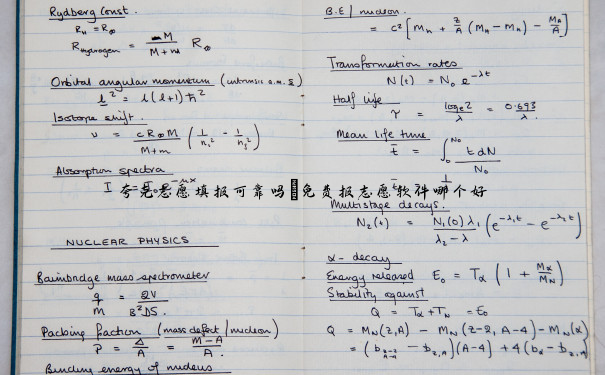 Rydberg Const.
R_H = R_∞
R_Hydrogen = M / (M + m) R_∞
Orbital angular momentum (intrinsic a.m. s)
l² = l(l+1)ħ²
Isotope shift.
ν = cR∞M / (M+m) (1/n₁² - 1/n₂²)
Absorption spectra
夸克志愿填报可靠吗 免费报志愿软件哪个好
NUCLEAR PHYSICS
Bainbridge mass spectrometer
q/m = 2V / B²DS.
Packing fraction (mass defect / nucleon)
P = Δ/A = (M - A)/A.
Binding energy of nucleus
B.E / nucleon.
= c² [M_n + Z/A (M_H - M_n) - M_A/A]
Transformation rates
N(t) = N₀ e^-λt
Half Life
τ = log_e 2 / λ = 0.693 / λ.
Mean life time
t̄ = ∫₀^N₀ t dN / N₀
Multistage decays.
N₂(t) = N₁(0) λ₁ / (λ₂ - λ) (e^-λ₁t - e^-λ₂t)
α - decay
Energy released E₀ = Tα (1 + Mα/M_N)
Stability against
Q = Tα + T_N = E₀
Q = M_N(Z,A) - M_N(Z-2, A-4) - M_N(α)